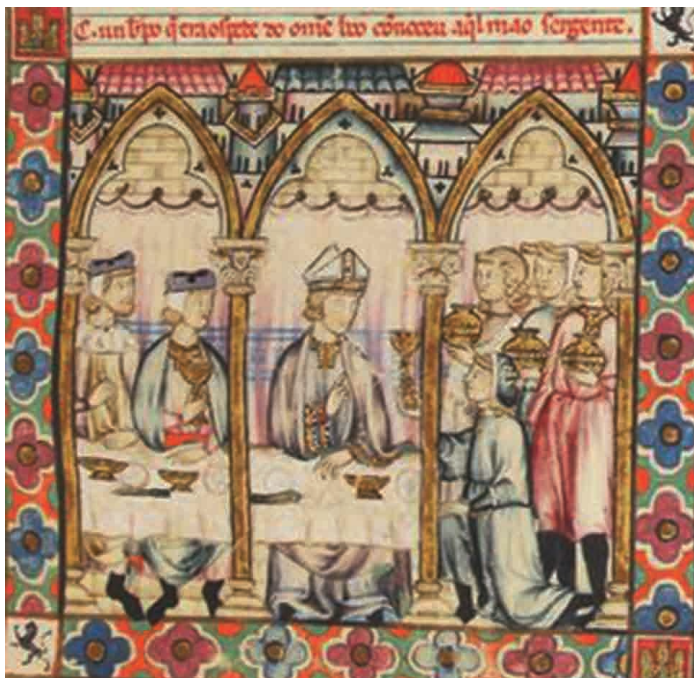 C. un bp̃o q̃ era ospede do om̃e bõo cõnoceu aq̃l mao sergente.